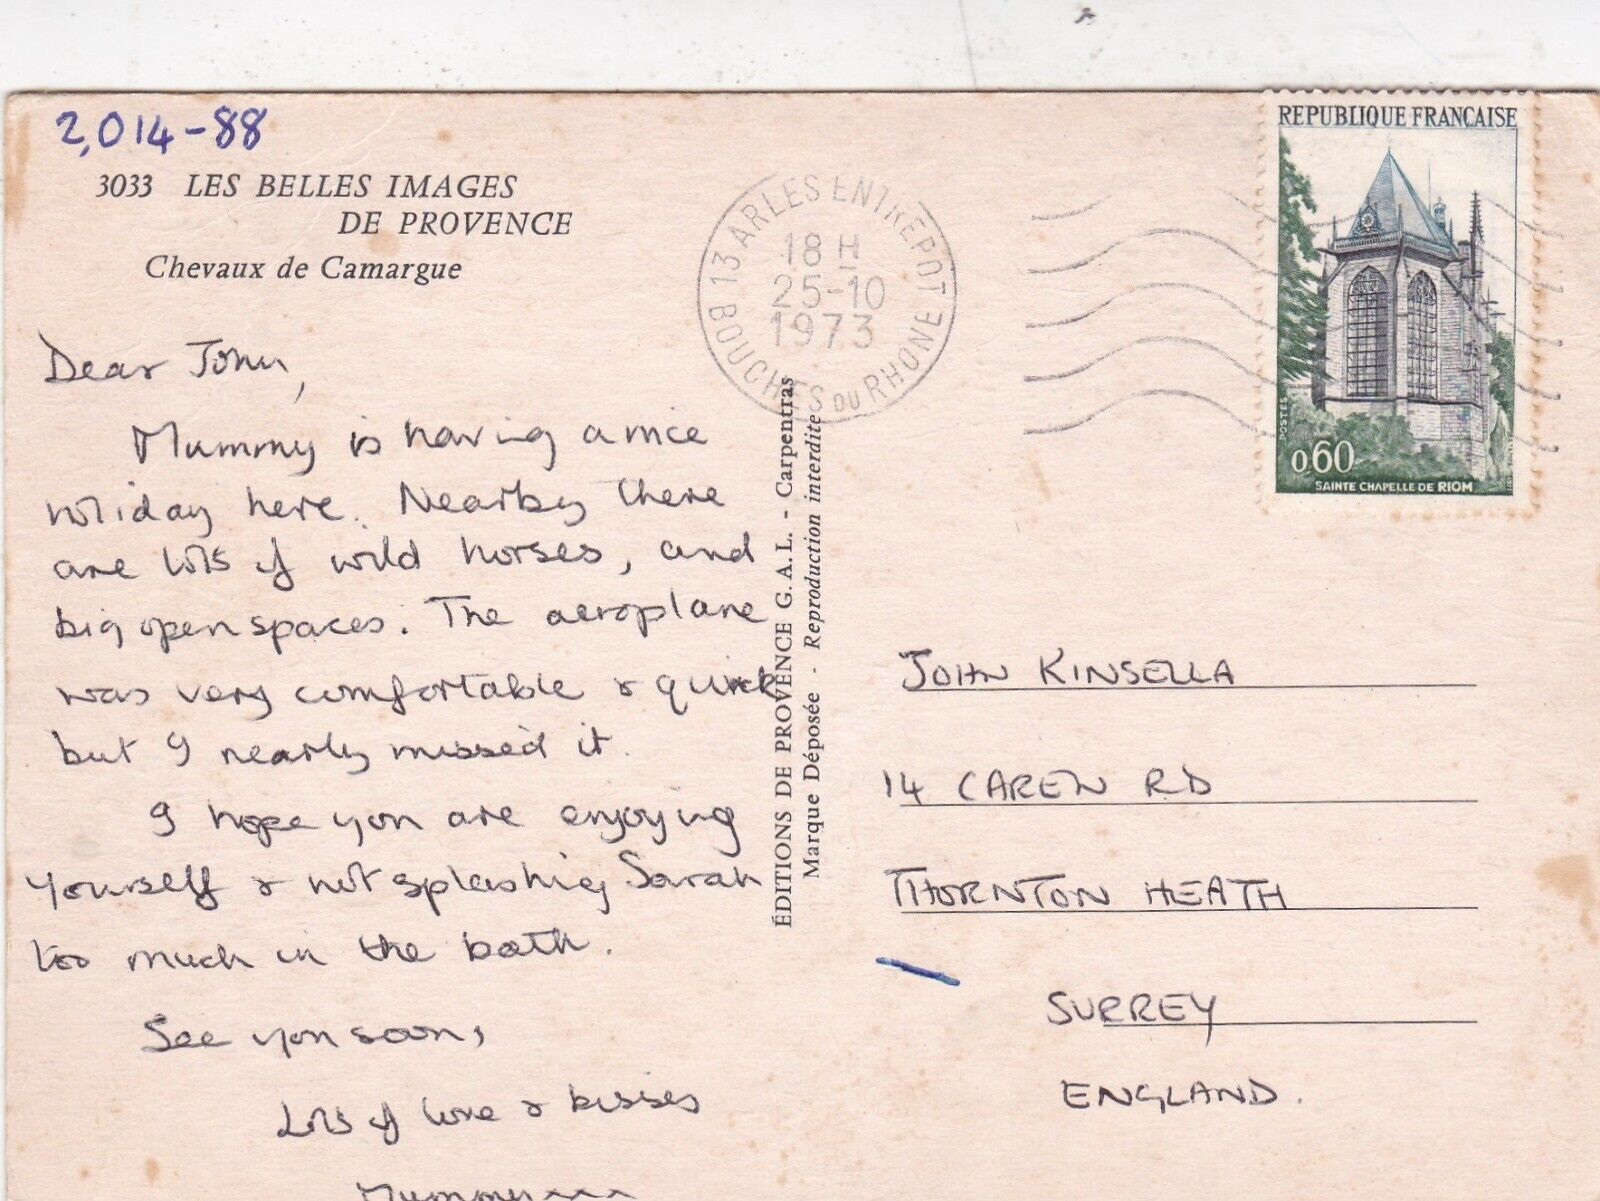 2,014-88
3033 LES BELLES IMAGES
DE PROVENCE
Chevaux de Camargue
Dear John,
Mummy is having a nice
holiday here. Nearby there
are lots of wild horses, and
big open spaces. The aeroplane
was very comfortable & quick
but I nearly missed it.
I hope you are enjoying
yourself & not splashing Sarah
too much in the bath.
See you soon,
Lots of love & kisses
Mummy xxx
ÉDITIONS DE PROVENCE G.A.L. - Carpentras
Marque Déposée - Reproduction interdite
13 ARLES ENTREPOT
18 H
25-10
1973
BOUCHES DU RHONE
REPUBLIQUE FRANÇAISE
POSTES
0,60
SAINTE CHAPELLE DE RIOM
JOHN KINSELLA
14 CAREW RD
THORNTON HEATH
SURREY
ENGLAND.